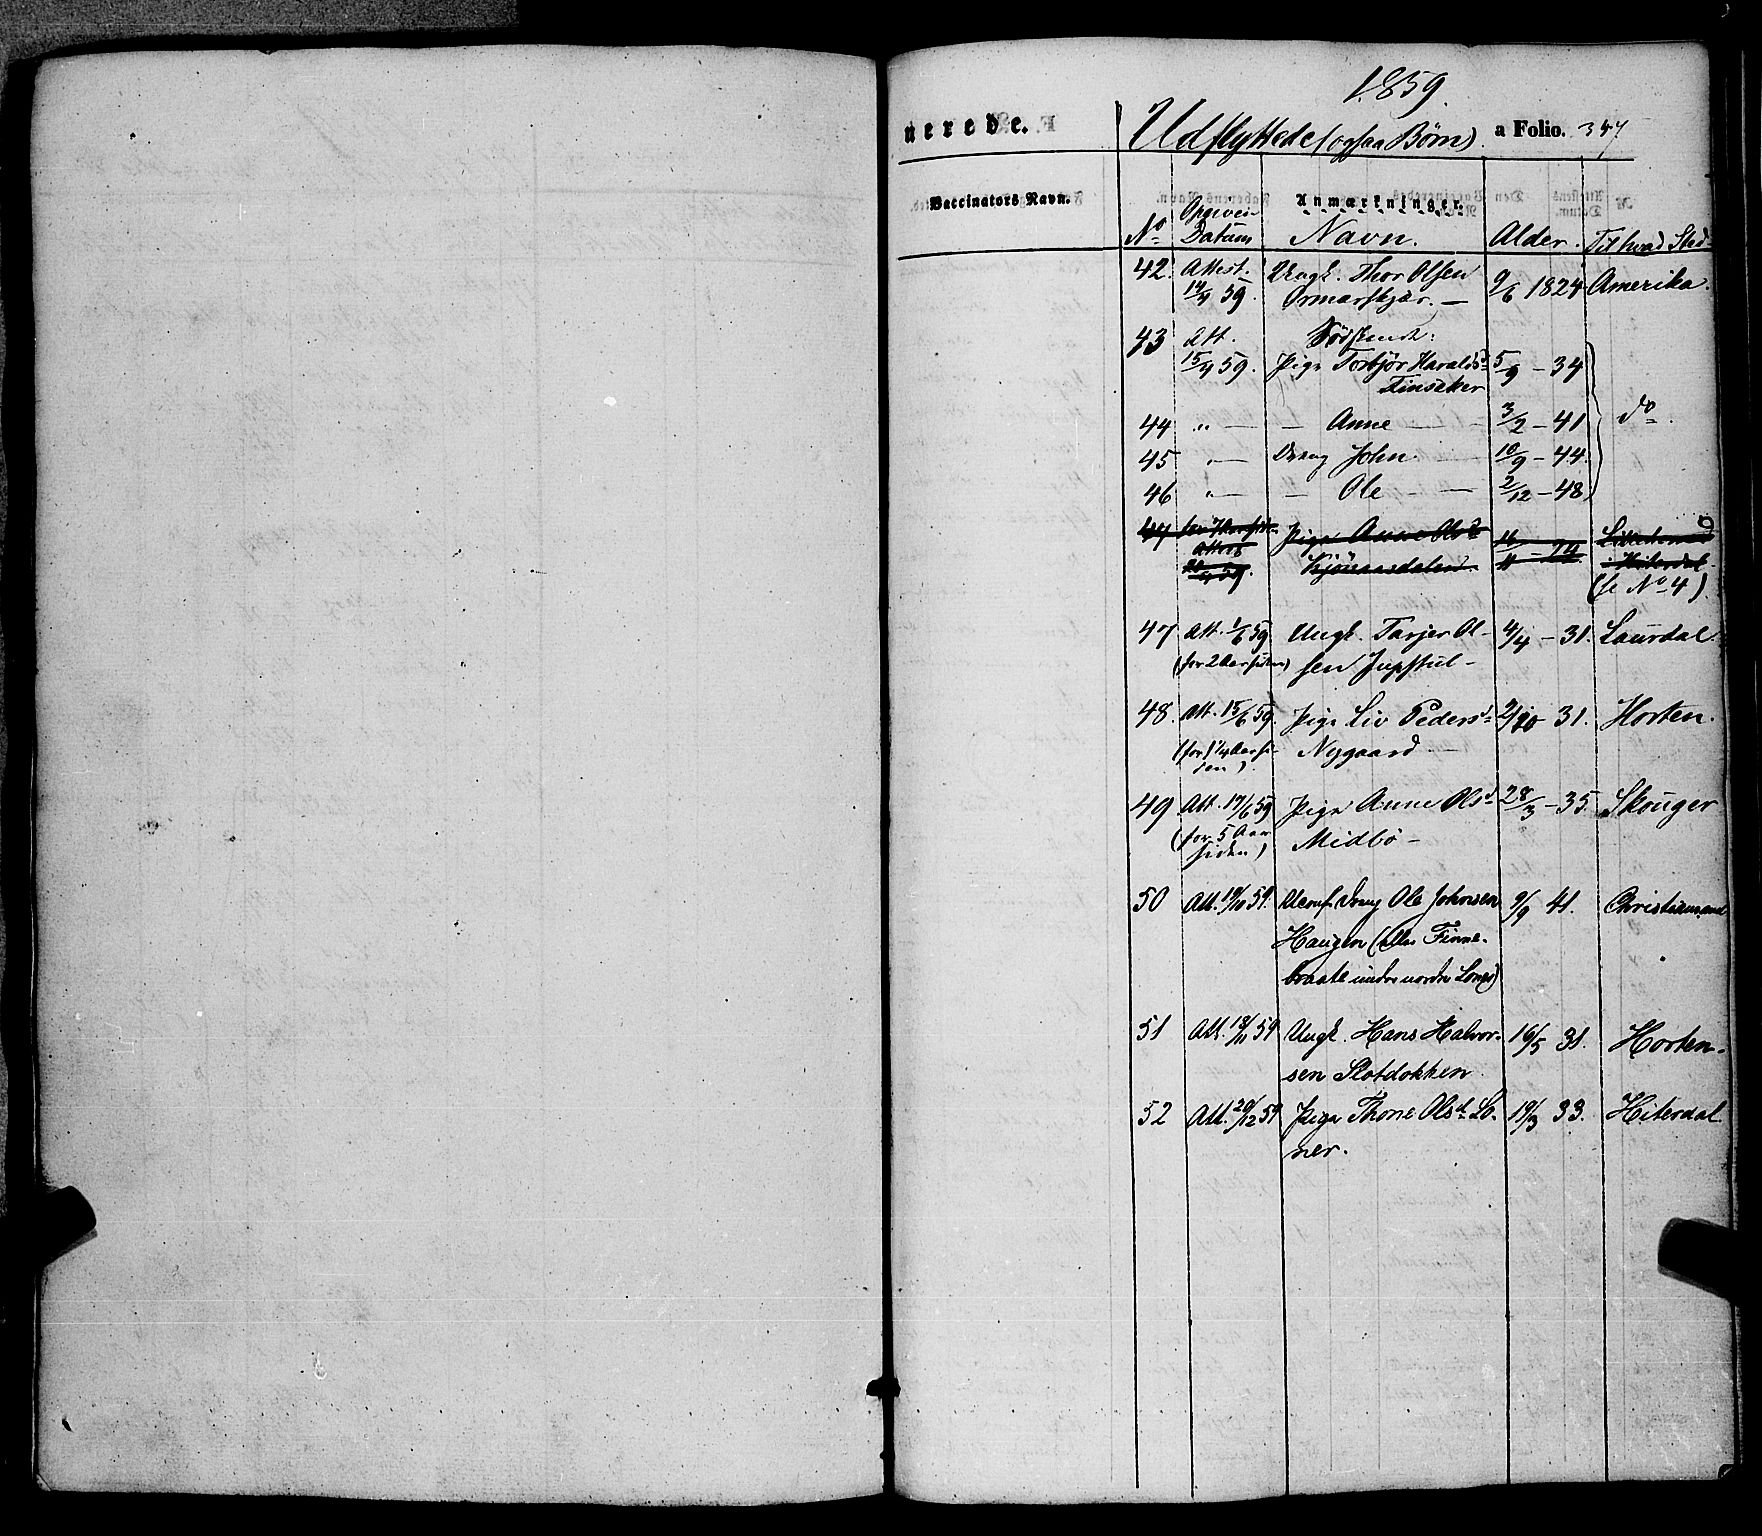 1859.
nerede. Udflyttede (ogsaa Børn). a Folio. 347
Vaccinators Navn. Anmærkninger.
No Opgiven Datum Navn. Alder. Til hvad Sted
42. Attest. 14/4 59. Ungk. Thor Olsen Ormarskjær. — 9/6 1824 Amerika.
43 Att. 15/4 59. Södskende:
Pige Torbjør Haralds- 5/9 — 34
Tinsaker
44 " — — Anne — 3/2 — 41 do.
45 " — Dreng John. 10/9 — 44.
46 " — — Ole — 2/12 — 48
47 Pige Anne Olsd
59.
i Hiterdal.
(se No 4).
47 Att. 1/6 59. Ungk. Tarjer Ol- 4/4 — 31. Laurdal
(for 2 Aar siden) sen Jupstul —
48. Att. 15/6 59. Pige Liv Pedersd 31. Horten.
(for 1 1/4 Aar si- Nygaard —
den).
49 Att. 17/6 59 Pige Anne Olsd 28/3 — 35. Skouger
(for 5 Aar Midbö —
siden)
50 Att. 19/10 59. Dreng Ole Johnsen 9/9 41. Christiansand
Haugen (eller Finne-
braate under nordre )
51 Att. 18/11 59 Ungk. Hans Halvor- 16/5 31. Horten.
sen Slotdokken
52 Att. 20/12 59 Pige Thone Olsd Lo- 19/3 33. Hiterdal
ner.